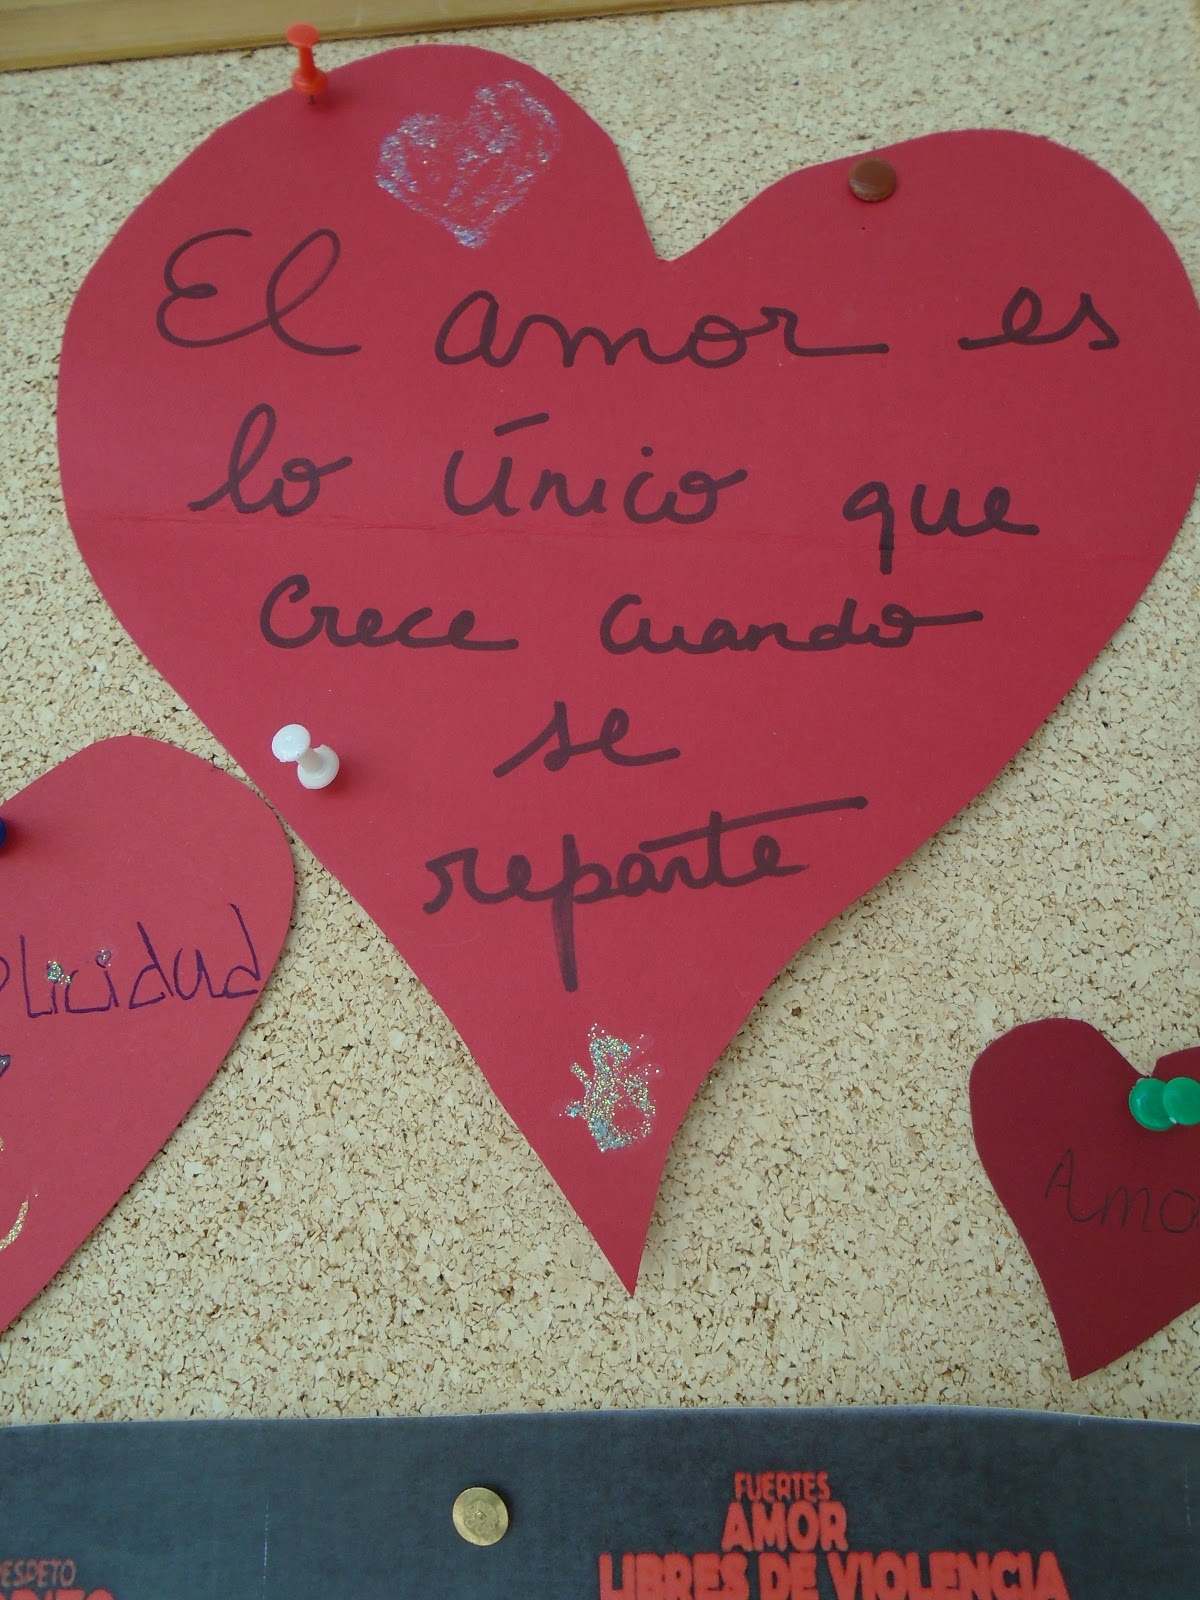 El amor es
lo único que
crece cuando
se
reparte
plicidad
Amo
FUERTES
AMOR
LIBRES DE VIOLENCIA
RESPETO